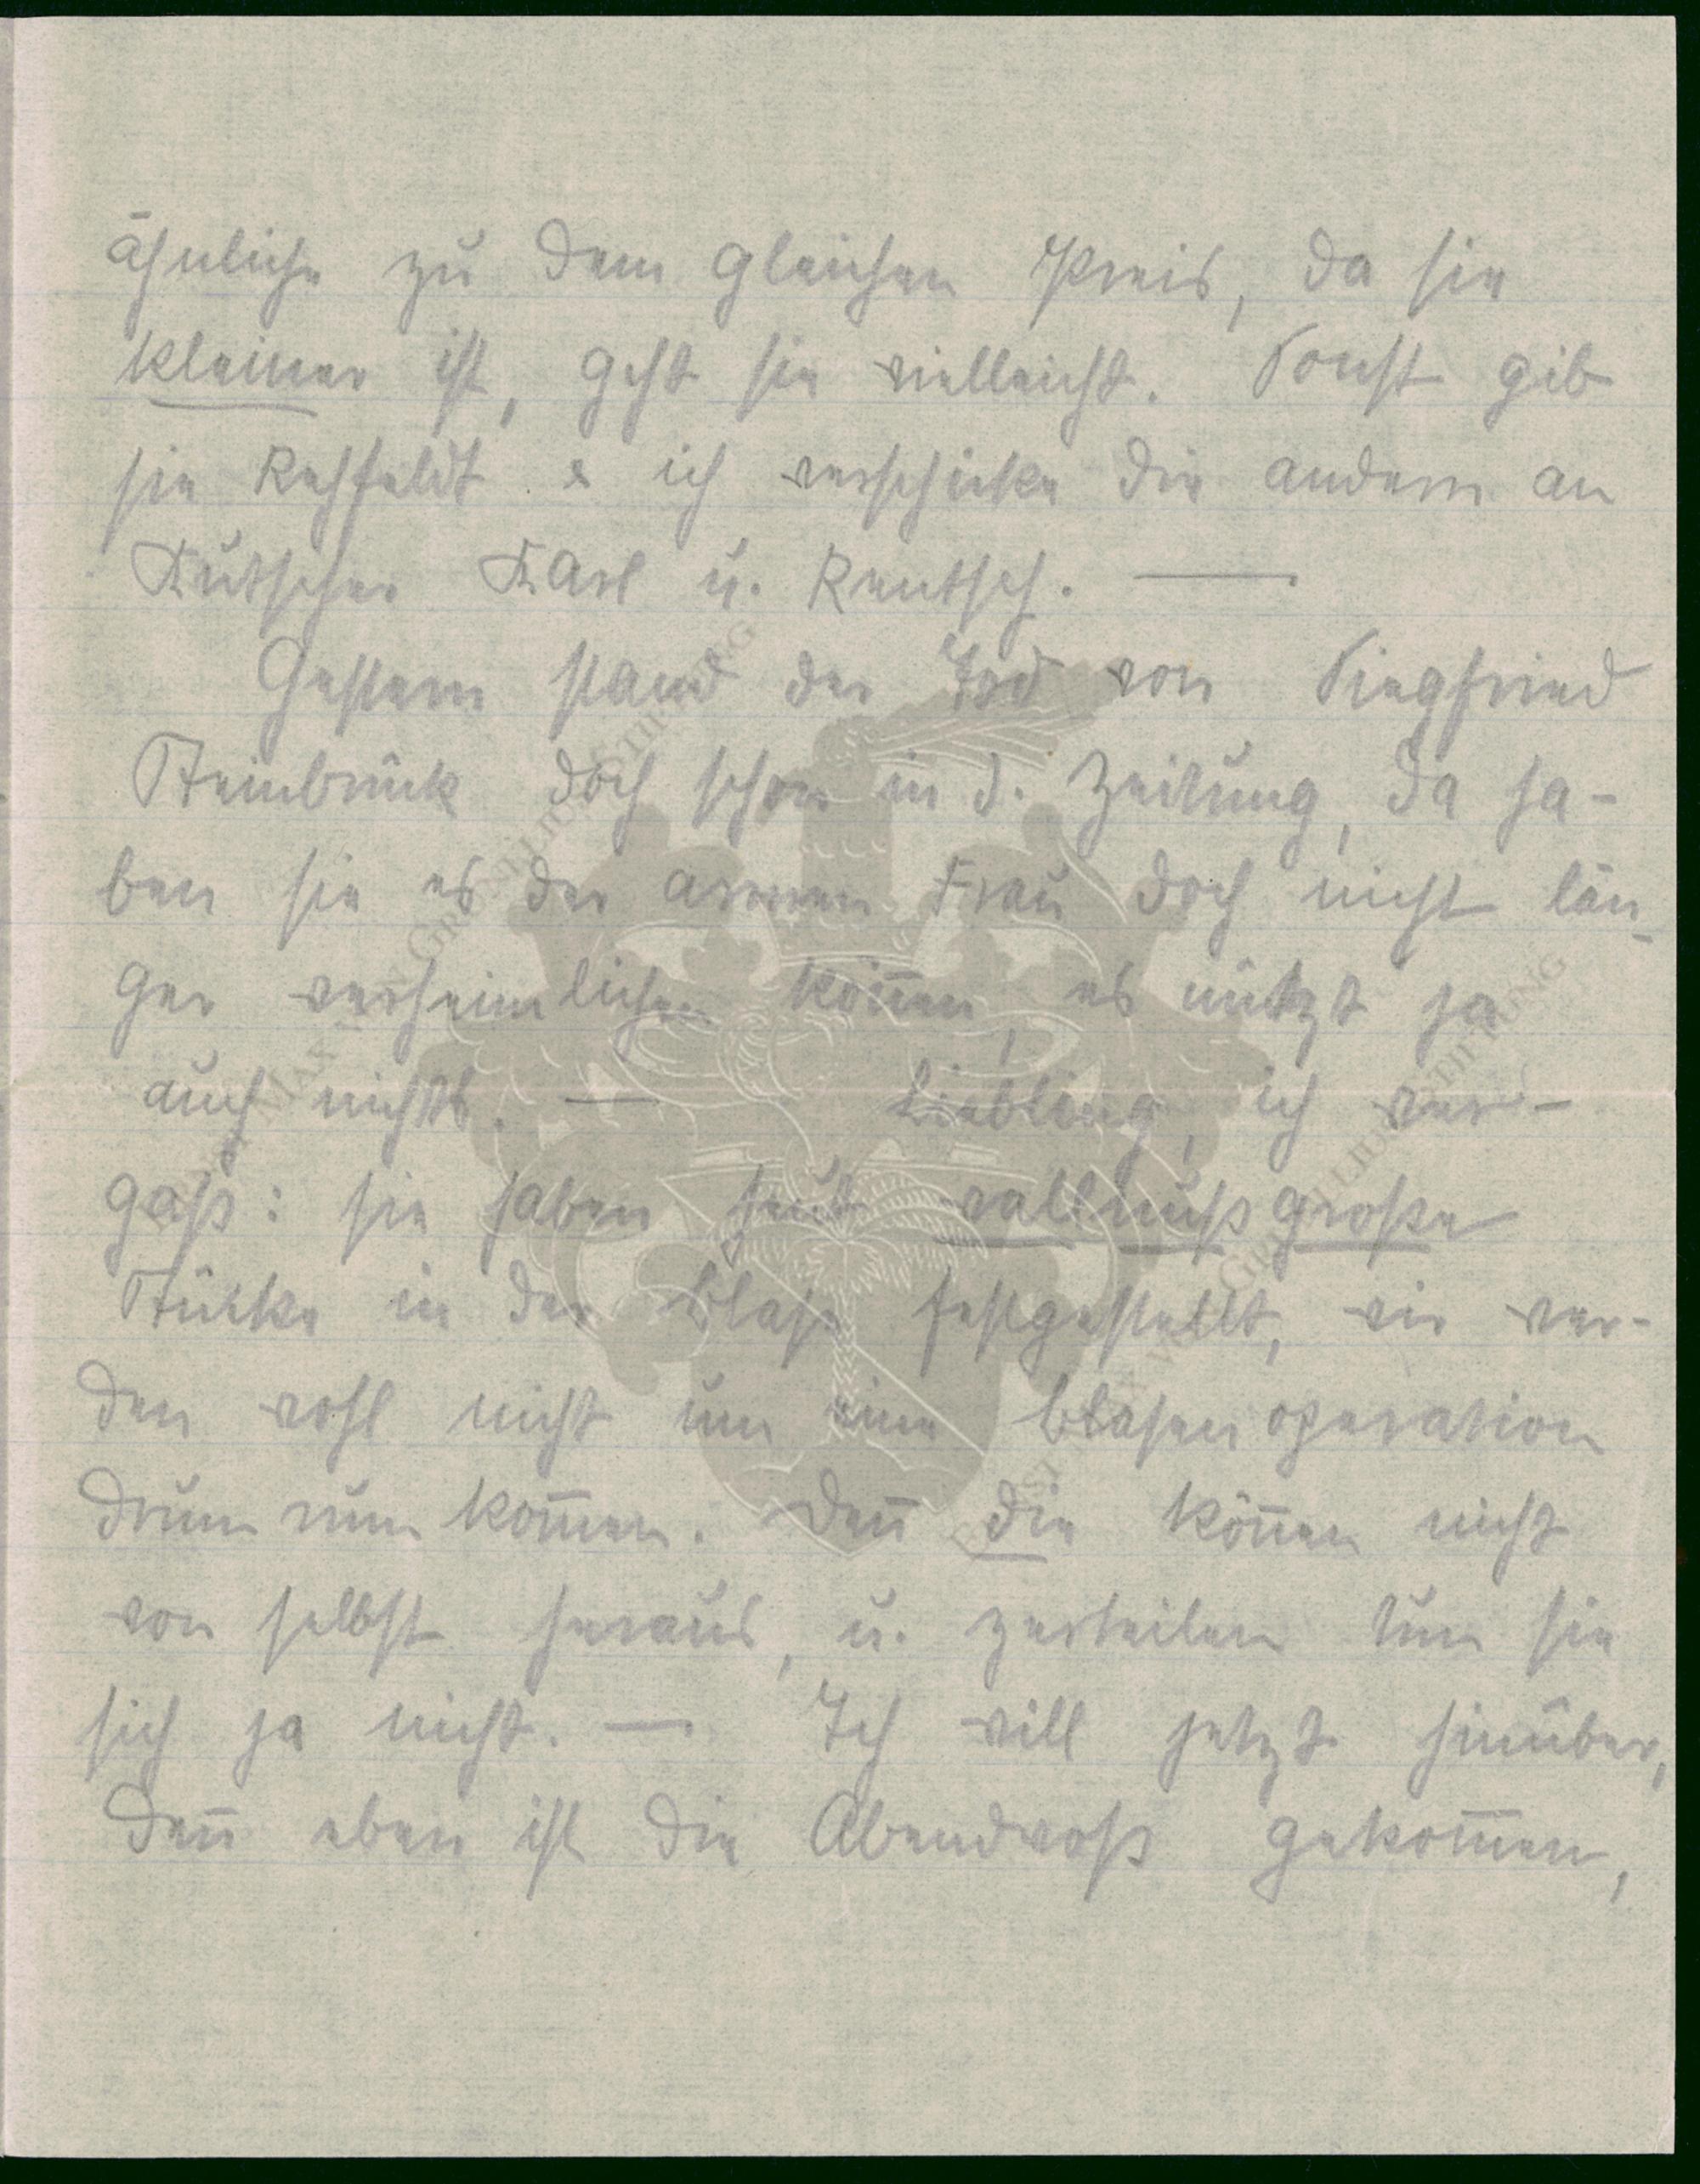 ähnliche zu dem gleichen Preis, da sie
kleiner ist, geht sie vielleicht. Sonst gib
sie Rehfeldt & ich verschicke die andern an
Kutscher Karl u. Rentsch. —
Gestern stand der Tod von Siegfried
Steinbrück doch schon in d. Zeitung, da ha-
ben sie es der armen Frau doch nicht län-
ger verheimlichen können, es nützt ja
auch nichts. — Liebling, ich ver-
gaß: sie haben heut wallnußgroße
Stücke in der Blase festgestellt, wir wer-
den wohl nicht um eine Blasenoperation
drum rum kom̅en. Den̅ die kön̅en nicht
von selbst heraus, u. zerteilen tun sie
sich ja nicht. — Ich will jetzt hinüber,
den̅ eben ist die Abendroth gekom̅en,